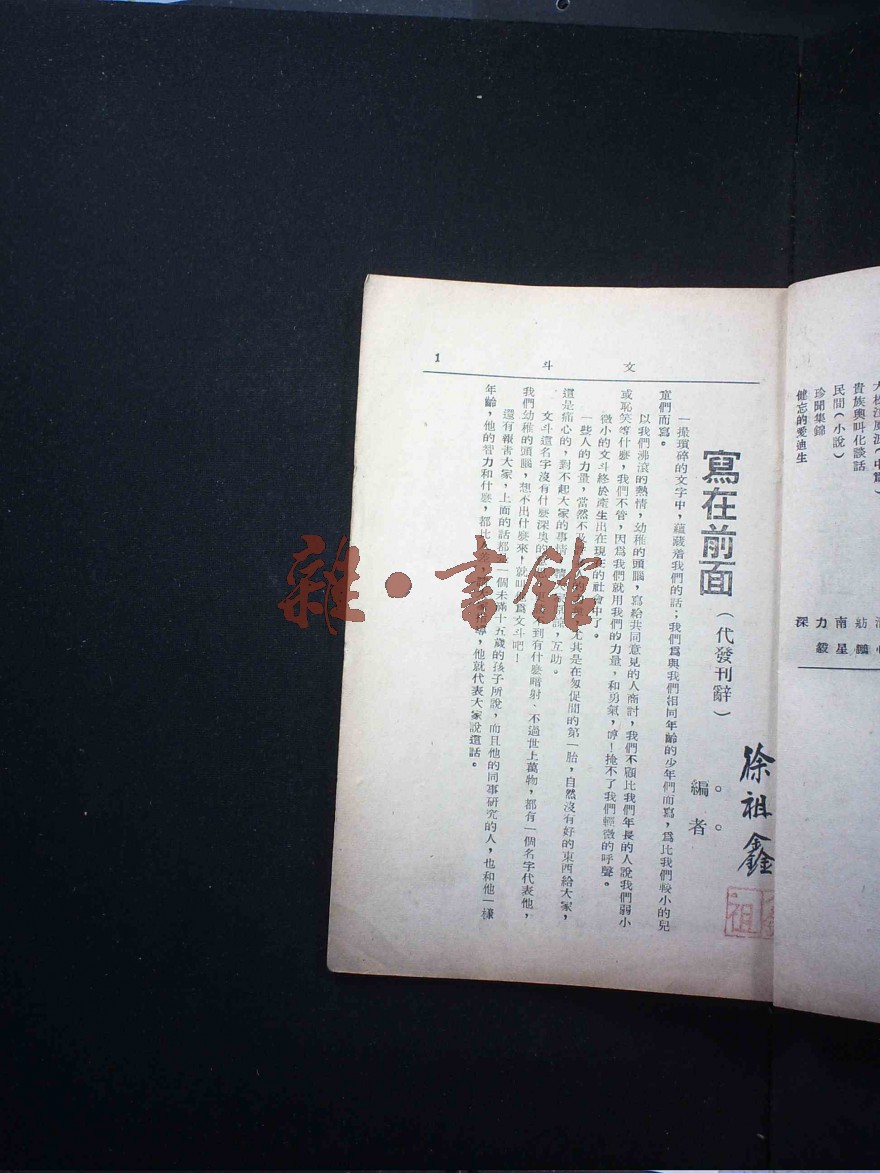 文斗
1
寫在前面
（代發刊辭）
編者
徐祖鑫
祖
一撮瑣碎的文字中，蘊藏着我們的話；我們爲與我們相同年齡的少年們而寫，爲比我們較小的兒
童們而寫。
以我們沸滾的熱情，幼稚的頭腦，寫給共同意見的人商討，我們不顧比我們年長的人說我們弱小
或恥笑等什麽，我們不管，因爲我們就用我們的力量，和勇氣，哼！掩不了我們輕微的呼聲。
微小的文斗終於產生出在現在的社會中了。
一些人的力量，當然不及 尤其是在匆促間的第一胎，自然沒有好的東西給大家，
這是痛心的，對不起大家的事情， 互助。
文斗這名字沒有什麽深奥的 到有什麽暗射、不過世上萬物，都有一個名字代表他，
我們幼稚的頭腦，想不出什麽來，就叫 爲文斗吧！
還有報吿大家，上面的話都 一個未滿十五歲的孩子所說，而且他的同事研究的人，也和他一樣
年齡，他的智力和什麽，都比 他就代表大家說這話。
貴族與叫化談話
民間（小說）
珍聞集錦
健忘的愛迪生
紡鷗
南星
力毅
深
雜·書館